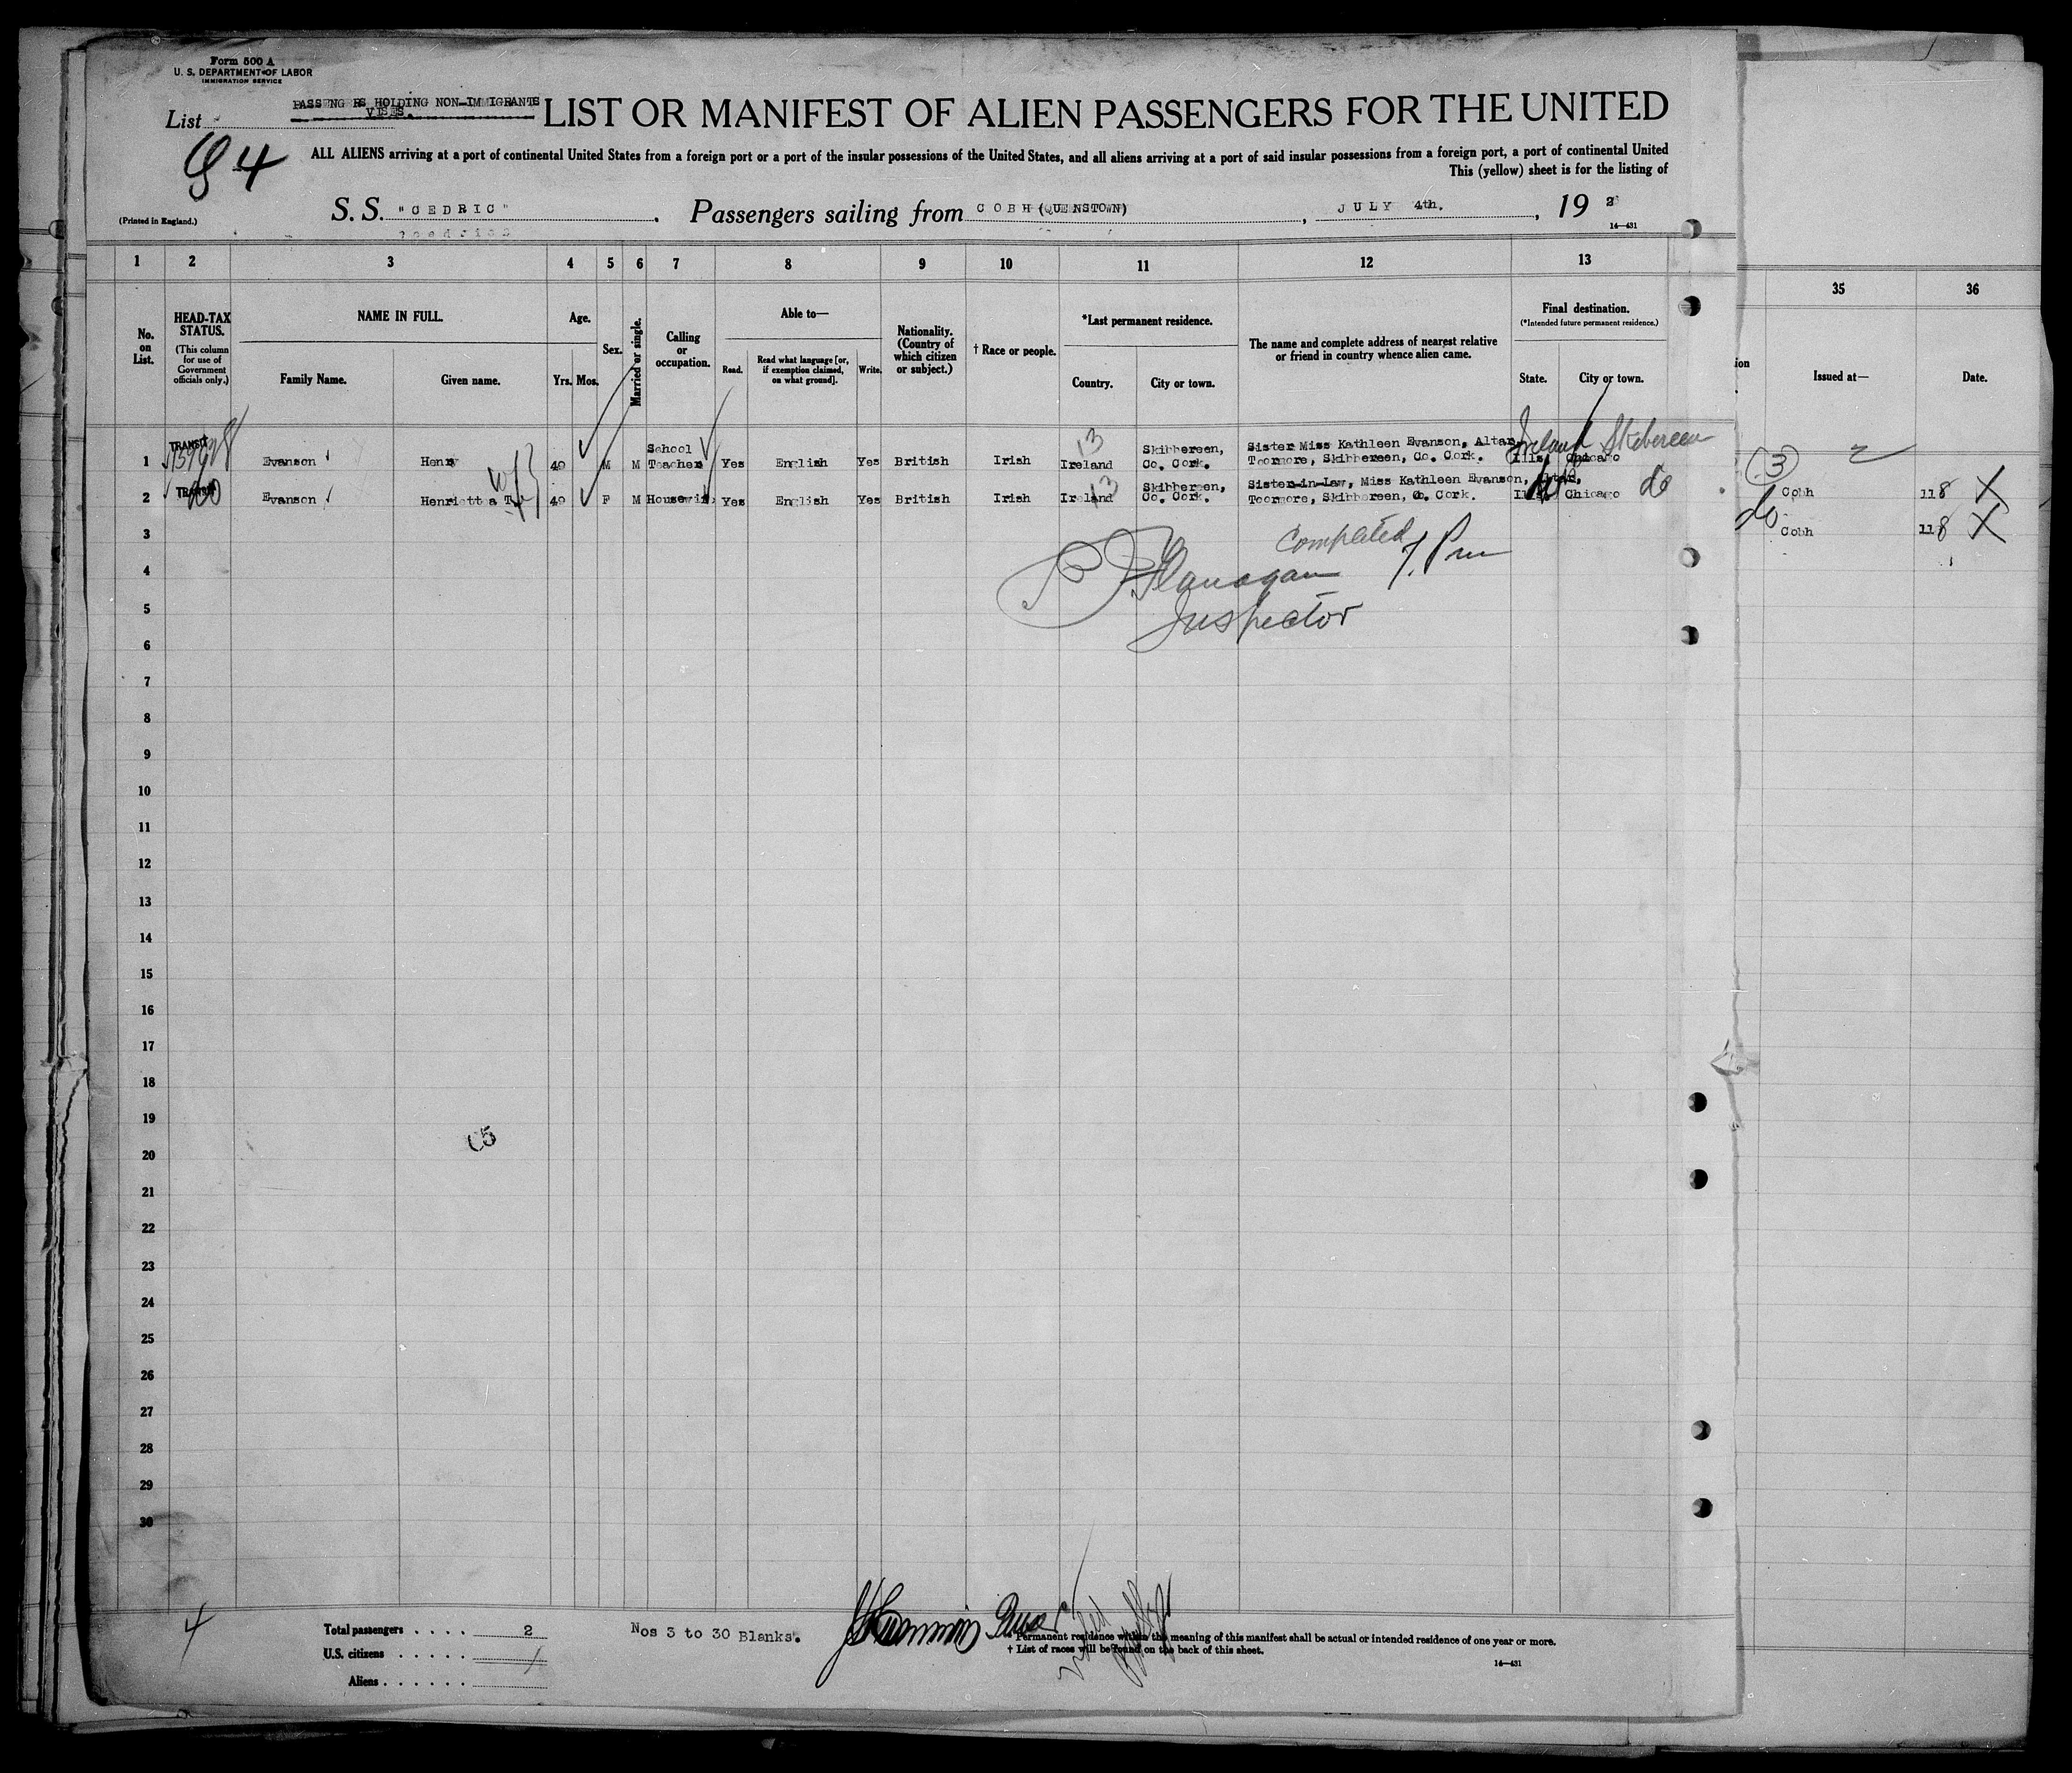 Form 500 A
U. S. DEPARTMENT OF LABOR
IMMIGRATION SERVICE
PASSENG RS HOLDING NON-IMMIGRANTS
VISES.
List
LIST OR MANIFEST OF ALIEN PASSENGERS FOR THE UNITED
G 4
ALL ALIENS arriving at a port of continental United States from a foreign port or a port of the insular possessions of the United States, and all aliens arriving at a port of said insular possessions from a foreign port, a port of continental United
This (yellow) sheet is for the listing of
(Printed in England.)
S. S. "CEDRIC" . Passengers sailing from COBH (QUEENSTOWN) , JULY 4th. , 19 2
14—431
1 2 3 4 5 6 7 8 9 10 11 12 13 35 36
No. on List.
HEAD-TAX STATUS.
(This column for use of Government officials only.)
NAME IN FULL.
Family Name. Given name.
Age.
Yrs. Mos.
Sex.
Married or single.
Calling or occupation.
Able to—
Read. Read what language [or, if exemption claimed, on what ground]. Write.
Nationality. (Country of which citizen or subject.)
† Race or people.
*Last permanent residence.
Country. City or town.
The name and complete address of nearest relative or friend in country whence alien came.
Final destination.
(*Intended future permanent residence.)
State. City or town.
Issued at— Date.
1 TRANSIT Evanson Henry 40 M M School Teacher Yes English Yes British Irish 13 Ireland Skibbereen, Co. Cork. Sister Miss Kathleen Evanson, Altar, Toormore, Skibbereen, Co. Cork. Ills, Chicago Ireland Skibereen
3 Cobh 118 X
2 TRANSIT Evanson Henrietta T. 40 F M Housewife Yes English Yes British Irish 13 Ireland Skibbereen, Co. Cork. Sister-in-Law, Miss Kathleen Evanson, Altar, Toormore, Skibbereen, Co. Cork. Ills, Chicago do
do Cobh 118 X
3
Completed
4
Flanagan
5
Inspector
6
7
8
9
10
11
12
13
14
15
16
17
18
19
C5
20
21
22
23
24
25
26
27
28
29
30
4
Total passengers . . . . 2
Nos 3 to 30 Blanks.
U.S. citizens . . . . .
Aliens . . . . . .
* Permanent residence within the meaning of this manifest shall be actual or intended residence of one year or more.
† List of races will be found on the back of this sheet.
14—431